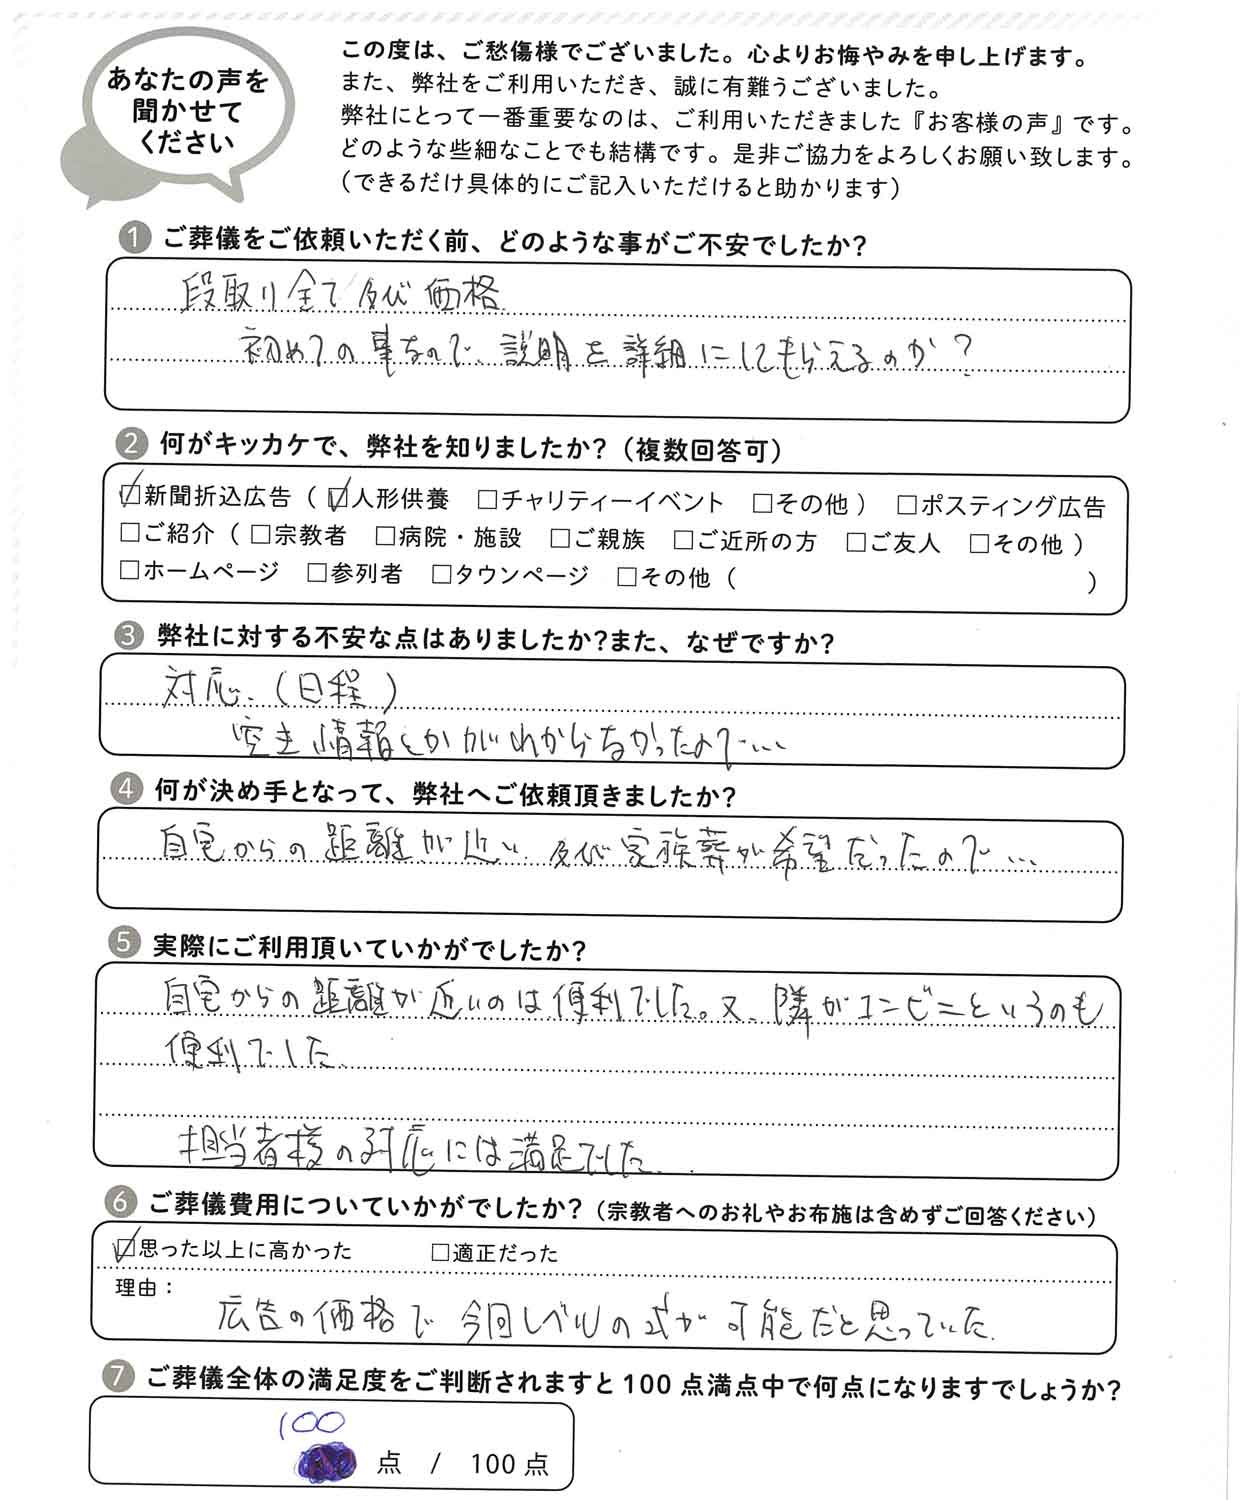 あなたの声を
聞かせて
ください
この度は、ご愁傷様でございました。心よりお悔やみを申し上げます。
また、弊社をご利用いただき、誠に有難うございました。
弊社にとって一番重要なのは、ご利用いただきました『お客様の声』です。
どのような些細なことでも結構です。是非ご協力をよろしくお願い致します。
（できるだけ具体的にご記入いただけると助かります）
1 ご葬儀をご依頼いただく前、どのような事がご不安でしたか？
段取り全て及び価格
初めての事なので、説明を詳細にしてもらえるのか？
2 何がキッカケで、弊社を知りましたか？（複数回答可）
☑新聞折込広告（ ☑人形供養 □チャリティーイベント □その他 ） □ポスティング広告
□ご紹介（ □宗教者 □病院・施設 □ご親族 □ご近所の方 □ご友人 □その他 ）
□ホームページ □参列者 □タウンページ □その他（ ）
3 弊社に対する不安な点はありましたか？また、なぜですか？
対応、（日程）
空き情報とかがわからなかったので…
4 何が決め手となって、弊社へご依頼頂きましたか？
自宅からの距離が近い、及び家族葬が希望だったので…
5 実際にご利用頂いていかがでしたか？
自宅からの距離が近いのは便利でした。又、隣がコンビニというのも
便利でした。
担当者様の対応には満足でした。
6 ご葬儀費用についていかがでしたか？（宗教者へのお礼やお布施は含めずご回答ください）
☑思った以上に高かった □適正だった
理由：
広告の価格で今回レベルの式が可能だと思っていた。
7 ご葬儀全体の満足度をご判断されますと100点満点中で何点になりますでしょうか？
100
点 / 100点